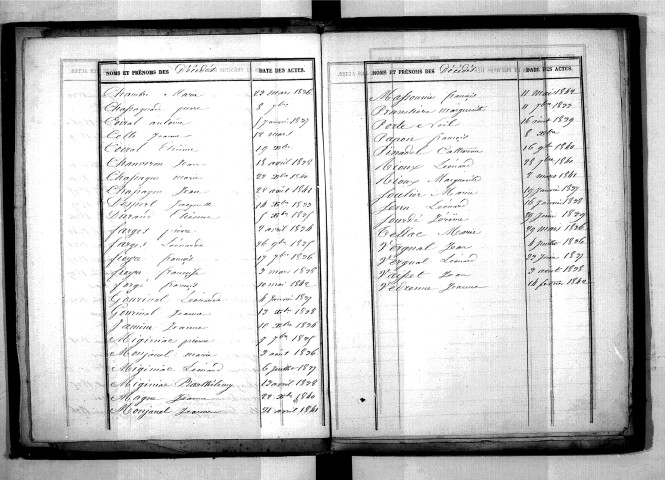 NOMS ET PRÉNOMS DES Décédés DATE DES ACTES.
Chambe Marie 22 mars 1826
Chassagnan pierre 8 7bre
Coival antoine 1 janvier 1827
Celle Jeanne 12 mars
Coival Etienne 19 Xbre
Chanveron Jean 18 avril 1828
Chassagne marie 22 Xbre 1840
Chassagne Jean 22 août 1841
Despert Jacquette 14 Xbre 1822
Durand Etienne 5 Xbre 1825
farges pierre 2 avril 1824
farges Léonarde 26 9bre 1825
fraysse françois 17 7bre 1826
françoise 2 mars 1828
fargé françois 10 mai 1842
Gourinal Léonarde 4 janvier 1827
Gourinal Jeanne 12 Xbre 1828
Jamine Jeanne 10 Xbre 1824
Miginiac pierre 9 7bre 1825
Monjanel marie 2 août 1826
Miginiac Léonard 6 juillet 1827
Miginiac Barthélemy 12 avril 1828
Magne Jeanne 22 Xbre 1840
Monjanel Jeanne 21 avril 1841
NOMS ET PRÉNOMS DES Décédés DATE DES ACTES.
Massounie françois 11 mai 1842
marguerite 11 7bre 1822
Porte Noël 16 août 1829
françois 8 Xbre
Pimadel Catherine 16 9bre 1840
Rioux Léonard 28 7bre 1840
Rioux Marguerite 2 mars 1841
Soulier Marie 19 janvier 1827
Léonard 16 janvier 1828
Jérôme 29 juin 1829
Tellac Marie 29 mars 1826
Vergnal Jean 4 juillet 1826
Vergnal Léonard 22 juin 1827
Vasset Jean 2 août 1828
Vedrenne Jeanne 14 février 1842